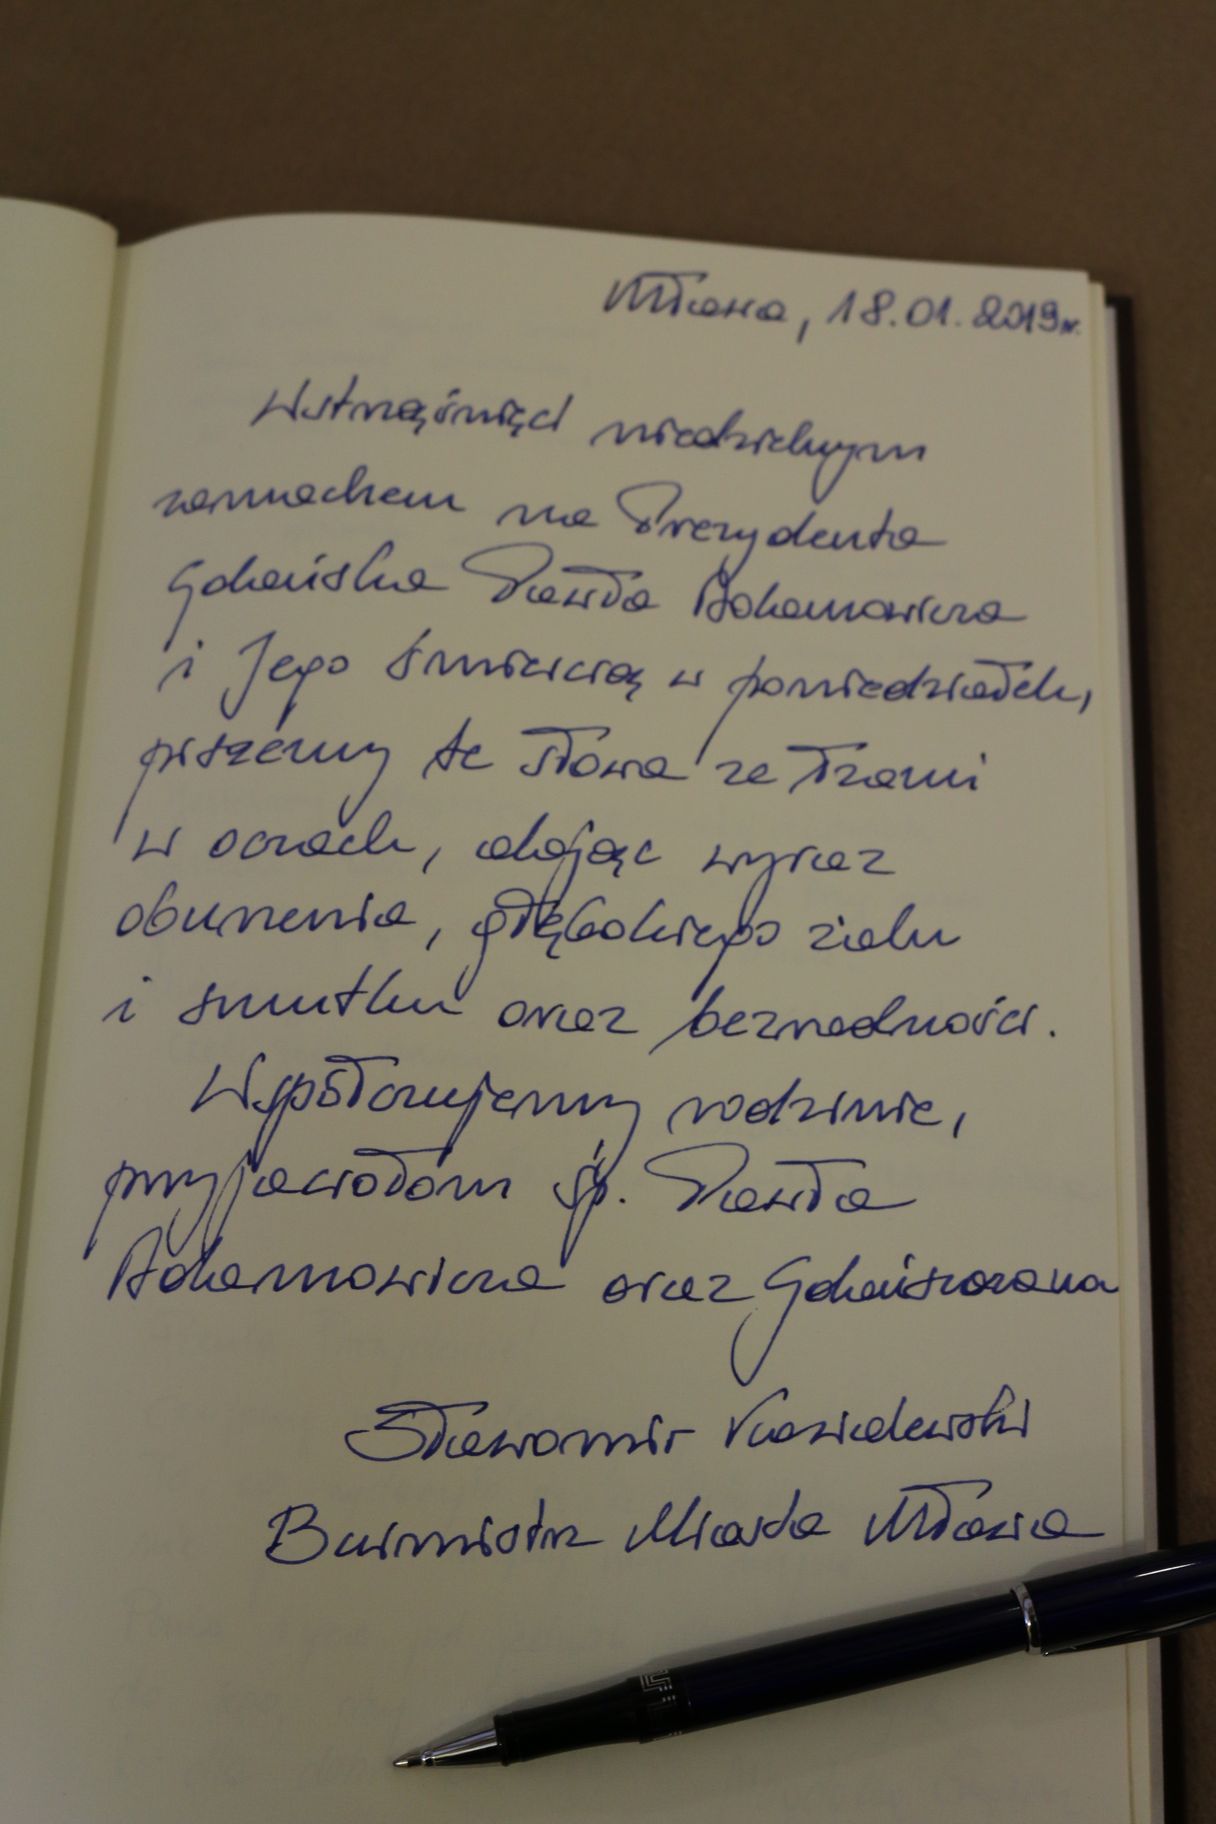 Mława, 18.01.2019r.
Wstrząśnięci niedzielnym
zamachem na Prezydenta
Gdańska Pawła Adamowicza
i Jego śmiercią w poniedziałek,
piszemy te słowa ze łzami
w oczach, dając wyraz
oburzenia, głębokiego żalu
i smutku oraz bezradności.
Współczujemy rodzinie,
przyjaciołom śp. Pawła
Adamowicza oraz Gdańszczanom
Sławomir Kowalewski
Burmistrz Miasta Mława